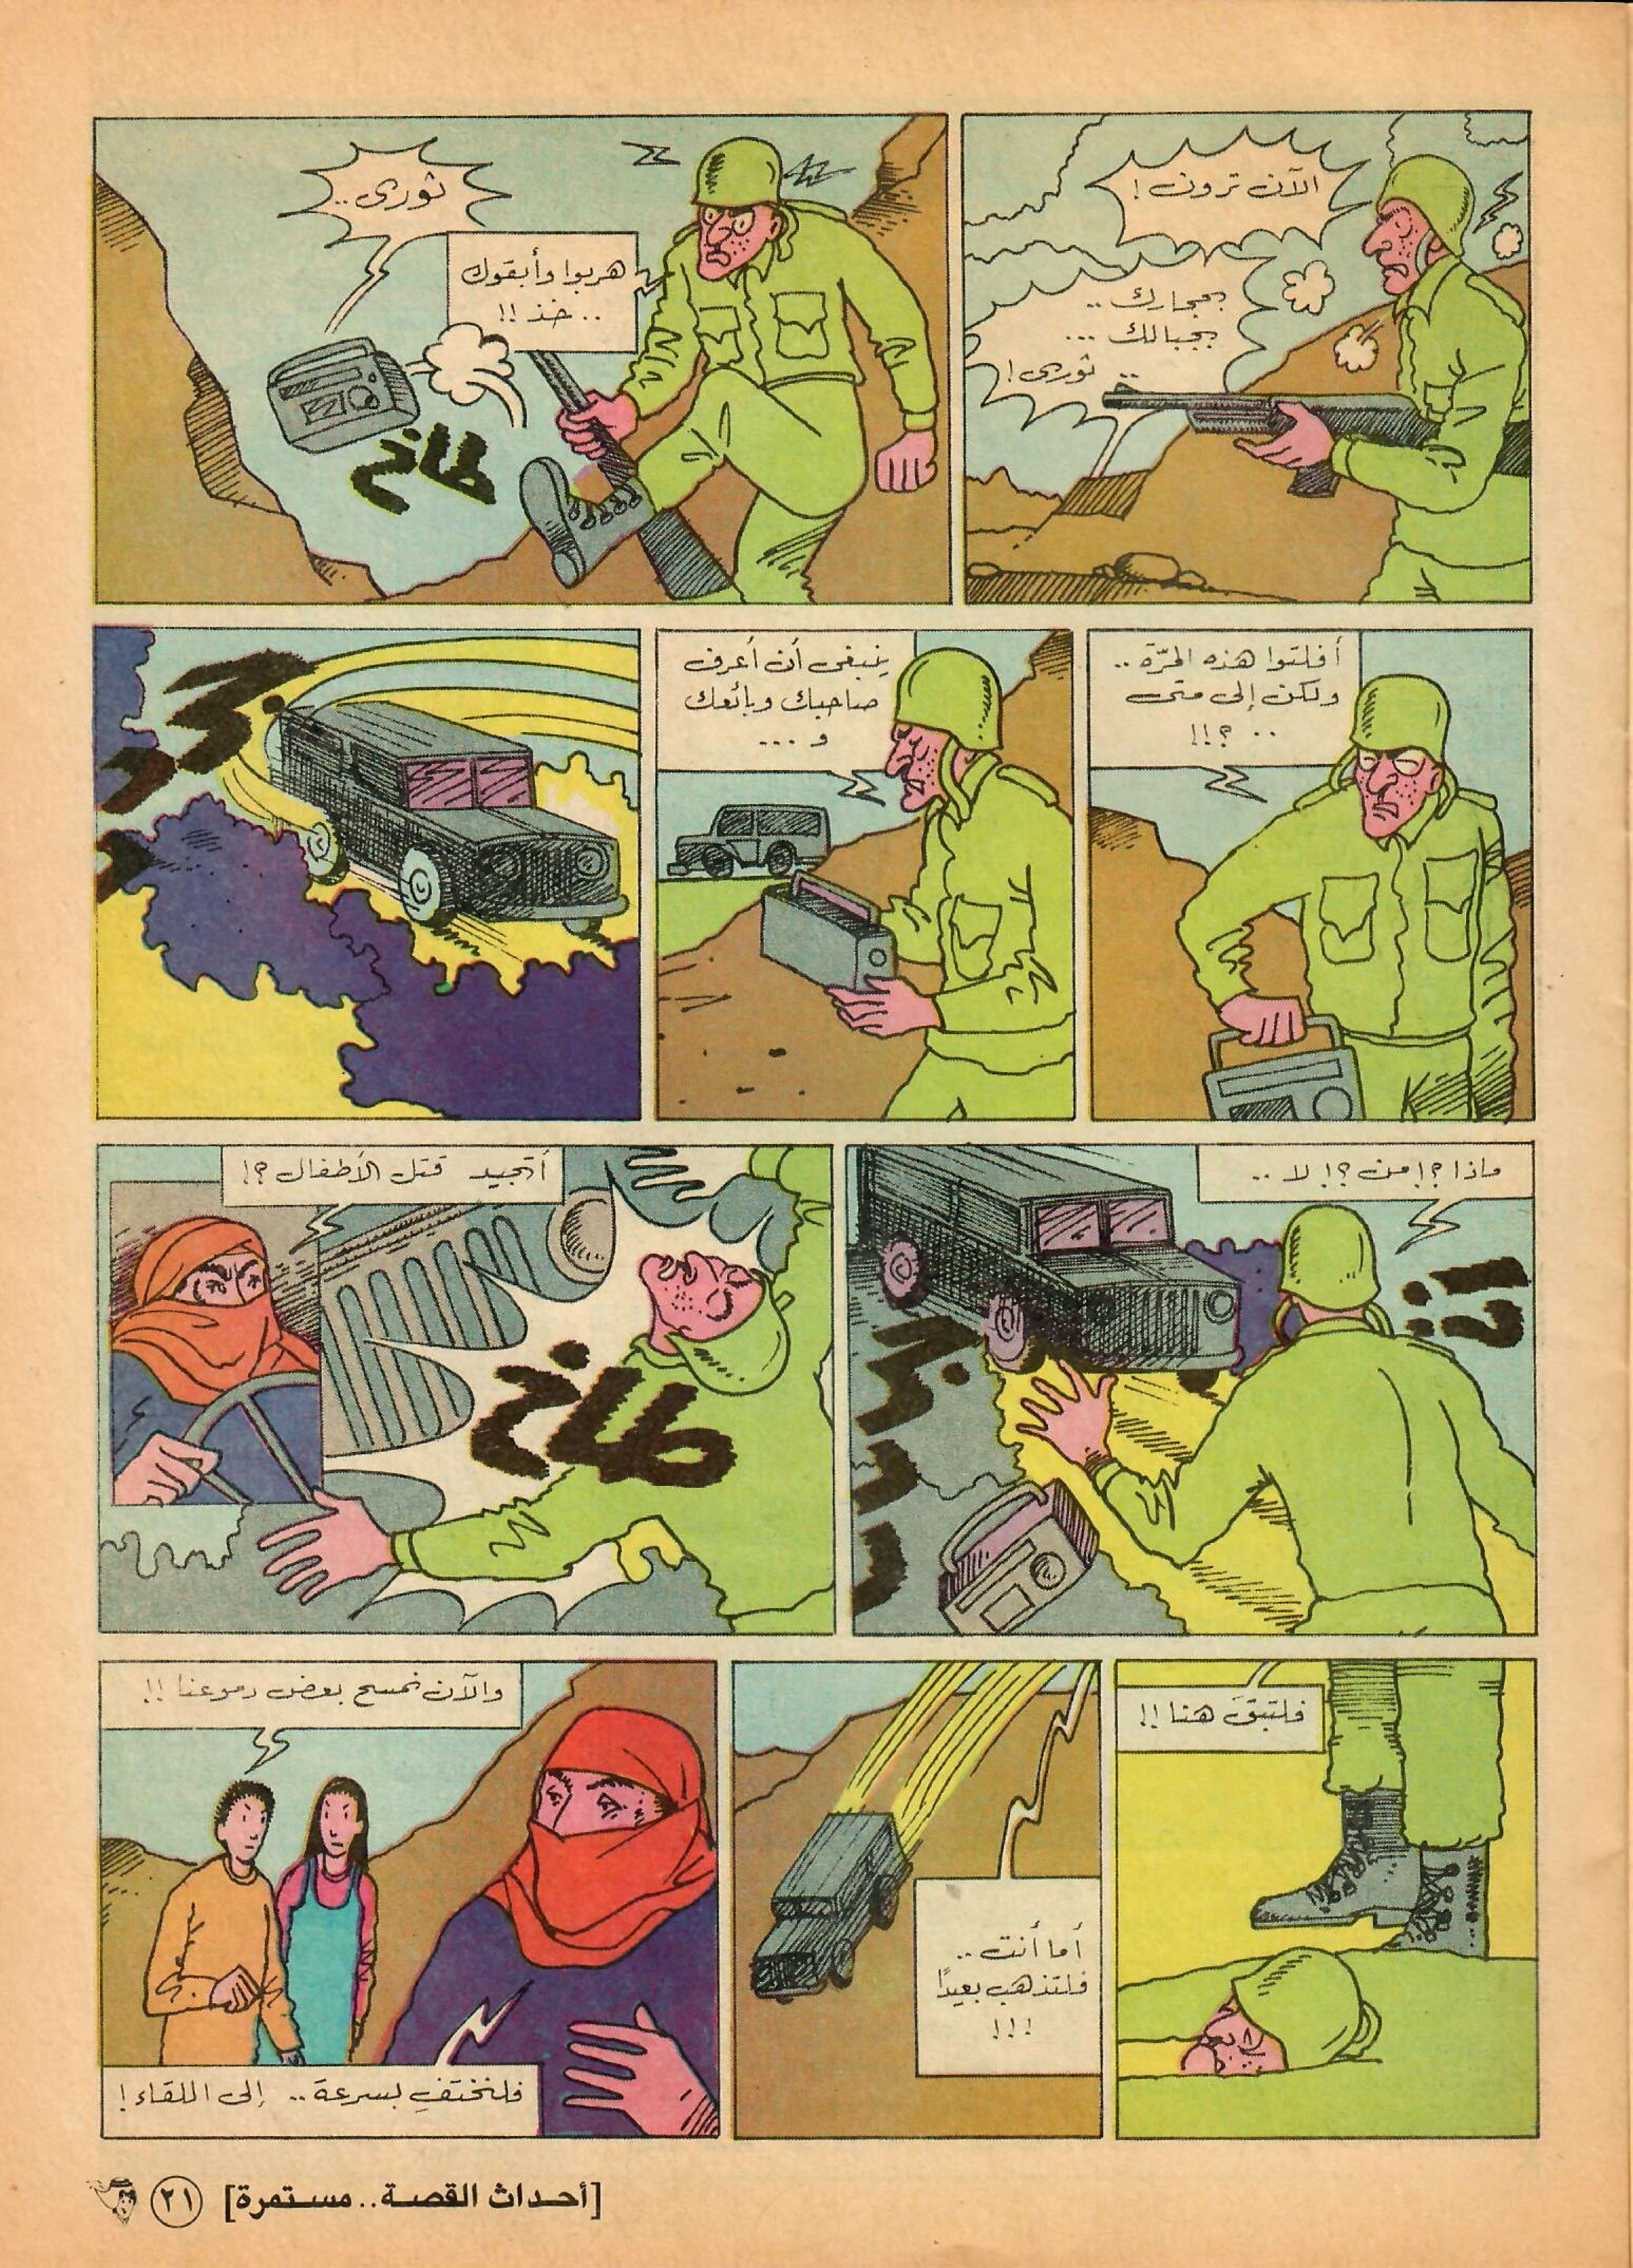 الآن ترون!
بحجارك..
بجبالك...
.. ثورى!
ثورى..
هربوا وأبقوك
..خذ!!
طاخ
أفلتوا هذه المرّة..
ولكن إلى متى
..؟!!
ينبغى أن أعرف
صاحبك وبائعك
و...
ماذا؟! من؟! لا..
!!؟
أتجيد قتل الأطفال؟!
طاخ
فلتبقَ هنا!!
أما أنت..
فلتذهب بعيدًا
!!!
والآن نمسح بعض دموعنا!!
فلنختفِ بسرعة.. إلى اللقاء!
[أحداث القصة.. مستمرة] ٢١